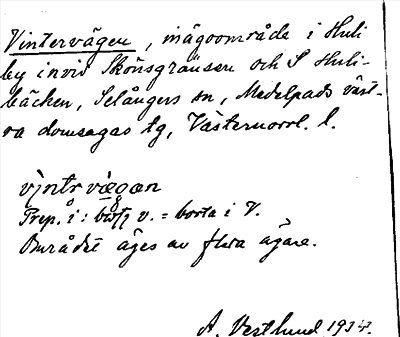 Vintervägen, inägoområde i Huli
by invid Skönsgränsen och S Huli-
bäcken, Selångers sn, Medelpads väst-
ra domsagas tg, Västernorrl. l.
vi̯ntrvægan
Prep. i: v. = borta i V.
Området äges av flera ägare.
A. Vestlund 1934.